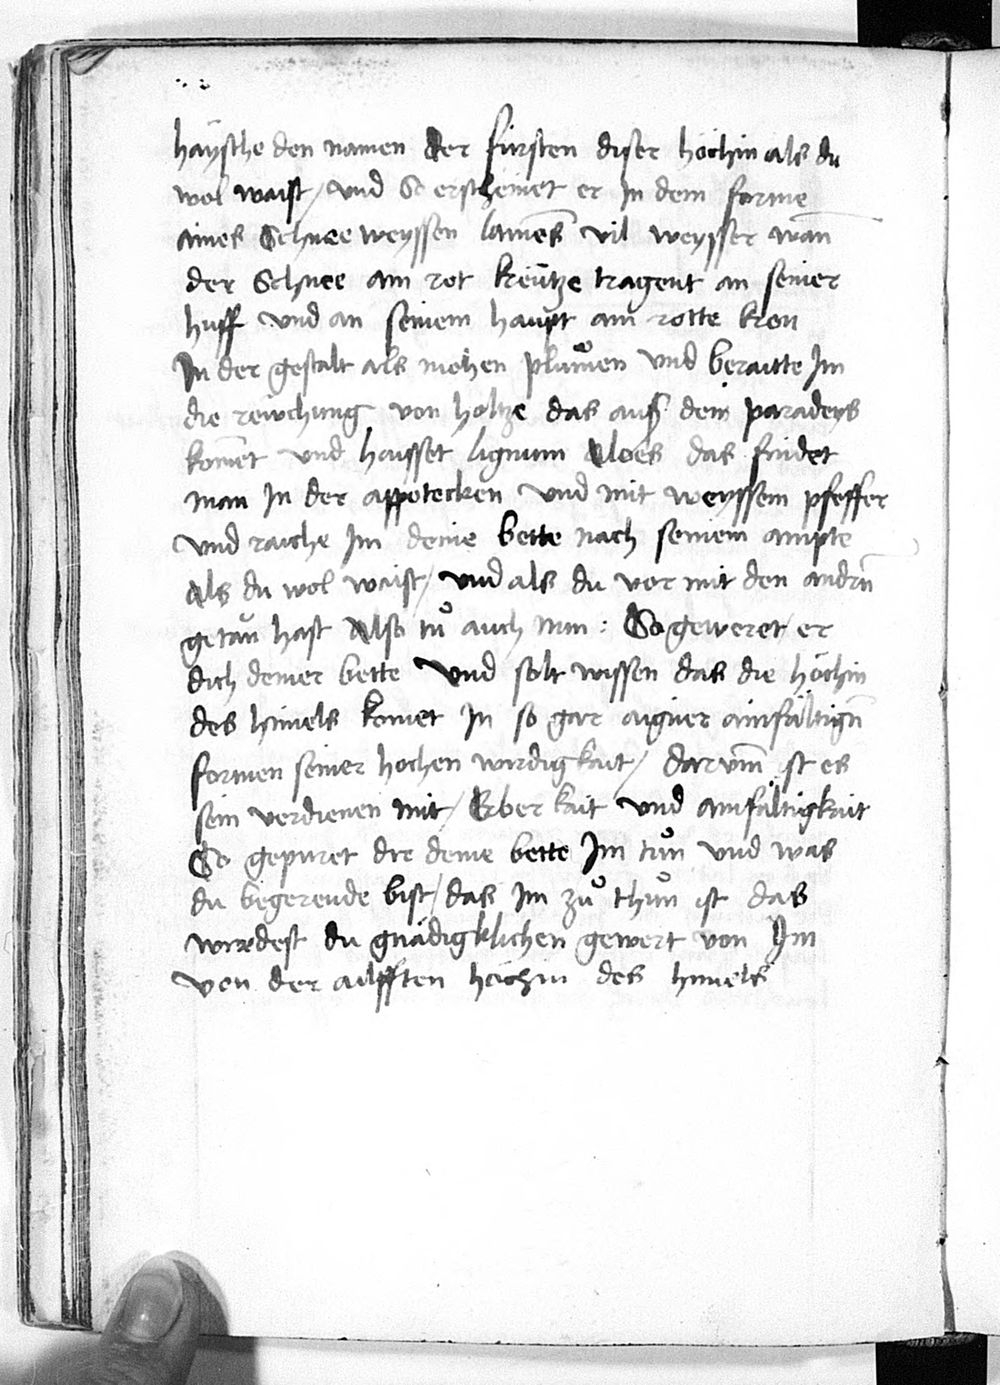 haysche den namen der fürsten diser höchin als du
wol waist / und So erscheinet er In dem forme
aines Schneeweyssen lames vil weysser wan̄
der Schnee ain rot kreütze tragent an seiner
huff und an seinem haupt ain rotte kron
In der gestalt als mohen pluͦmen und beraitte Im
die reüchung von holtze das auß dem paradeys
kom̄et und haisset lignum Aloes das findet
man In der appotecken und mit weyssem pfeffer
und rauche Im deine bette nach seinem ampte
Als du wol waist / und als du vor mit den andrn̄
getan hast Also tuͦ auch nun : So geweret er
dich deiner bette Und solt wissen das die höchin
des himels komet In so gar aigner ainfaltign̄
formen seiner hochen wirdigkait / darvm̄ ist es
sein verdienen mit / Erber kait und ainfältigkait
So gepuret dir deine bette Im tuͦn und was
du begerende bist / das Im zuͦ thuͦn ist das
wirdest du gnädigklichen gewert von Im
von der ailfften höchin des himels